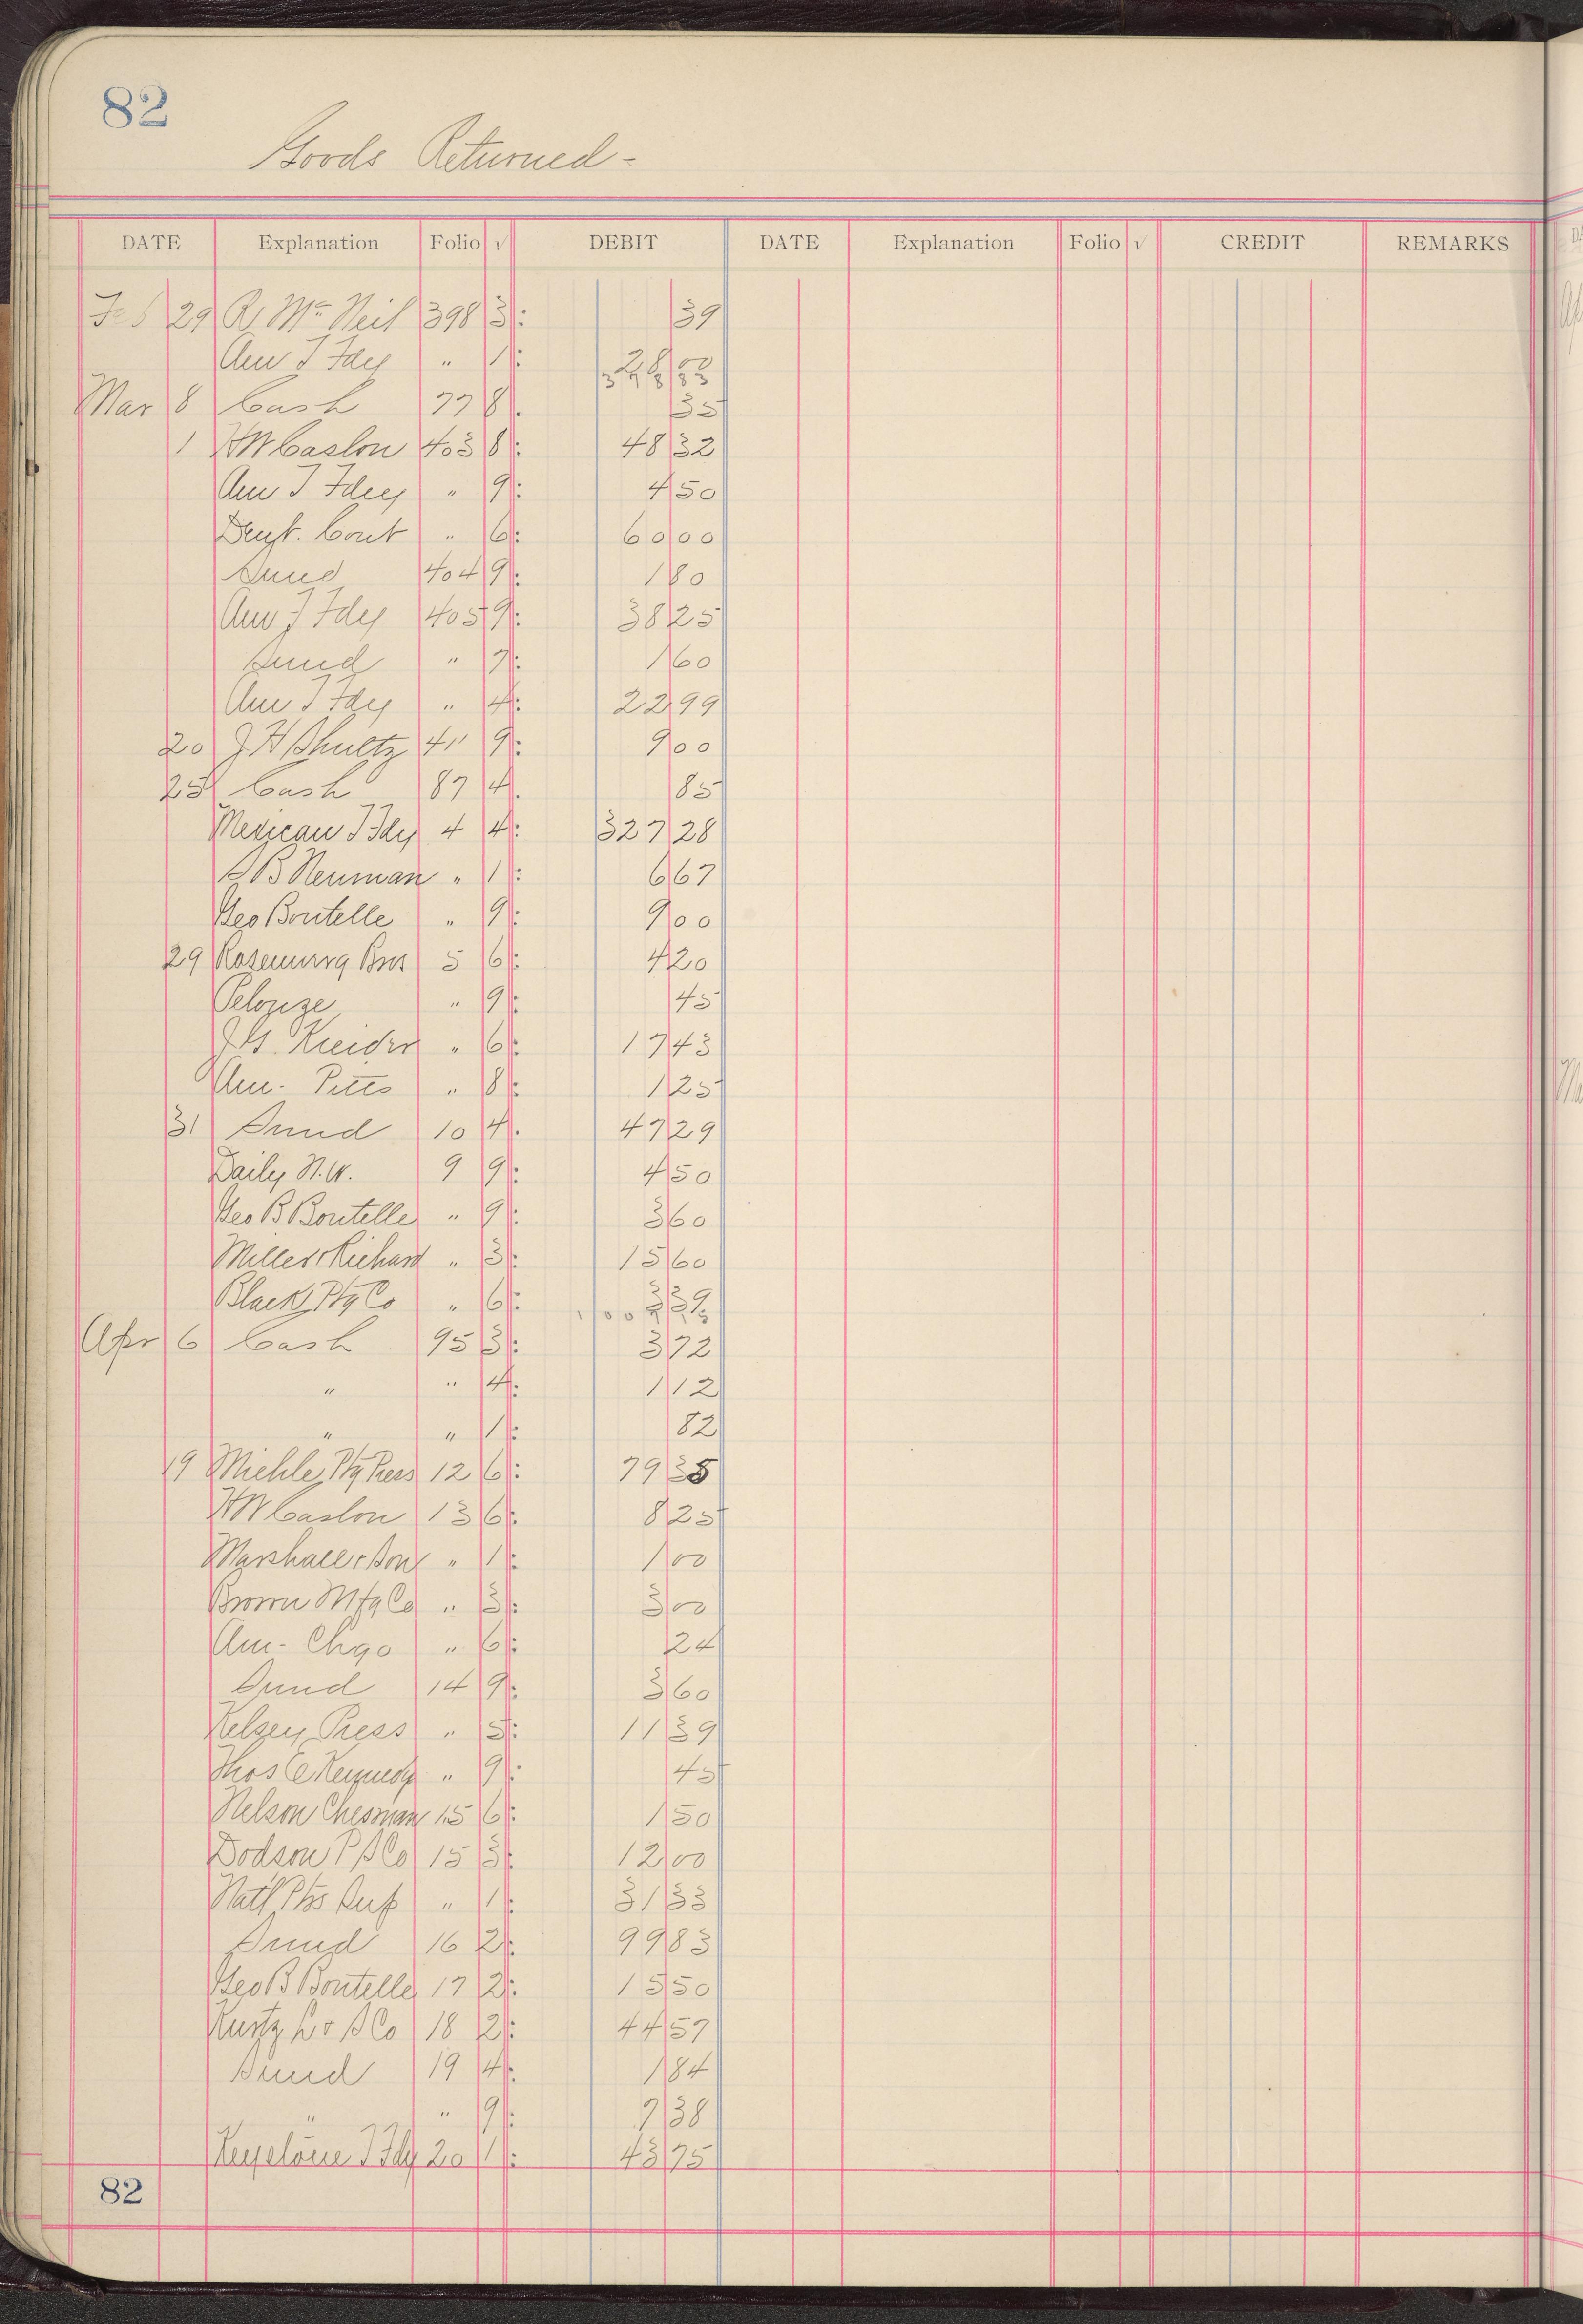 82
Goods Returned -
DATE Explanation Folio √ DEBIT DATE Explanation Folio √ CREDIT REMARKS
Feb 29 R McNeil 398 3 39
Am T Fdy " 1 28 00
378 83
Mar 8 Cash 77 8 35
1 HW Caslon 403 8 48 32
Am T Fdry " 9 4 50
Dept. Cont " 6 60 00
Sund 404 9 1 80
Am T Fdy 405 9 38 25
Sund " 7 1 60
Am T Fdy " 4 22 99
20 J H Shultz 411 9 9 00
25 Cash 87 4 85
Mexican T Fdy 4 4 327 28
S B Neuman " 1 6 67
Geo Boutelle " 9 9 00
29 Bros 5 6 4 20
Pelouze " 9 45
J G. Kreider " 6 17 43
Am. Pitts " 8 1 25
31 Sund 10 4 47 29
Daily N.W. 9 9 4 50
Geo B Boutelle " 9 3 60
Miller & Richard " 3 15 60
Black Ptg Co " 6 3 39
Apr 6 Cash 95 3 3 72
" " 4 1 12
" " 1 82
19 Miehle Ptg Press 12 6 79 38
HW Caslon 13 6 8 25
Marshall & Son " 1 1 00
Brown Mfg Co " 3 3 00
Am - Chgo " 6 24
Sund 14 9 3 60
Kelsey Press " 5 11 39
Thos E Kennedy " 9 45
Nelson Chesman 15 6 1 50
Dodson P S Co 15 3 12 00
Natl Ptrs Sup " 1 31 33
Sund 16 2 99 83
Geo B Boutelle 17 2 15 50
Kurtz L & S Co 18 2 44 57
Sund 19 4 1 84
" " 9 7 38
Keystone T Fdy 20 1 43 75
82